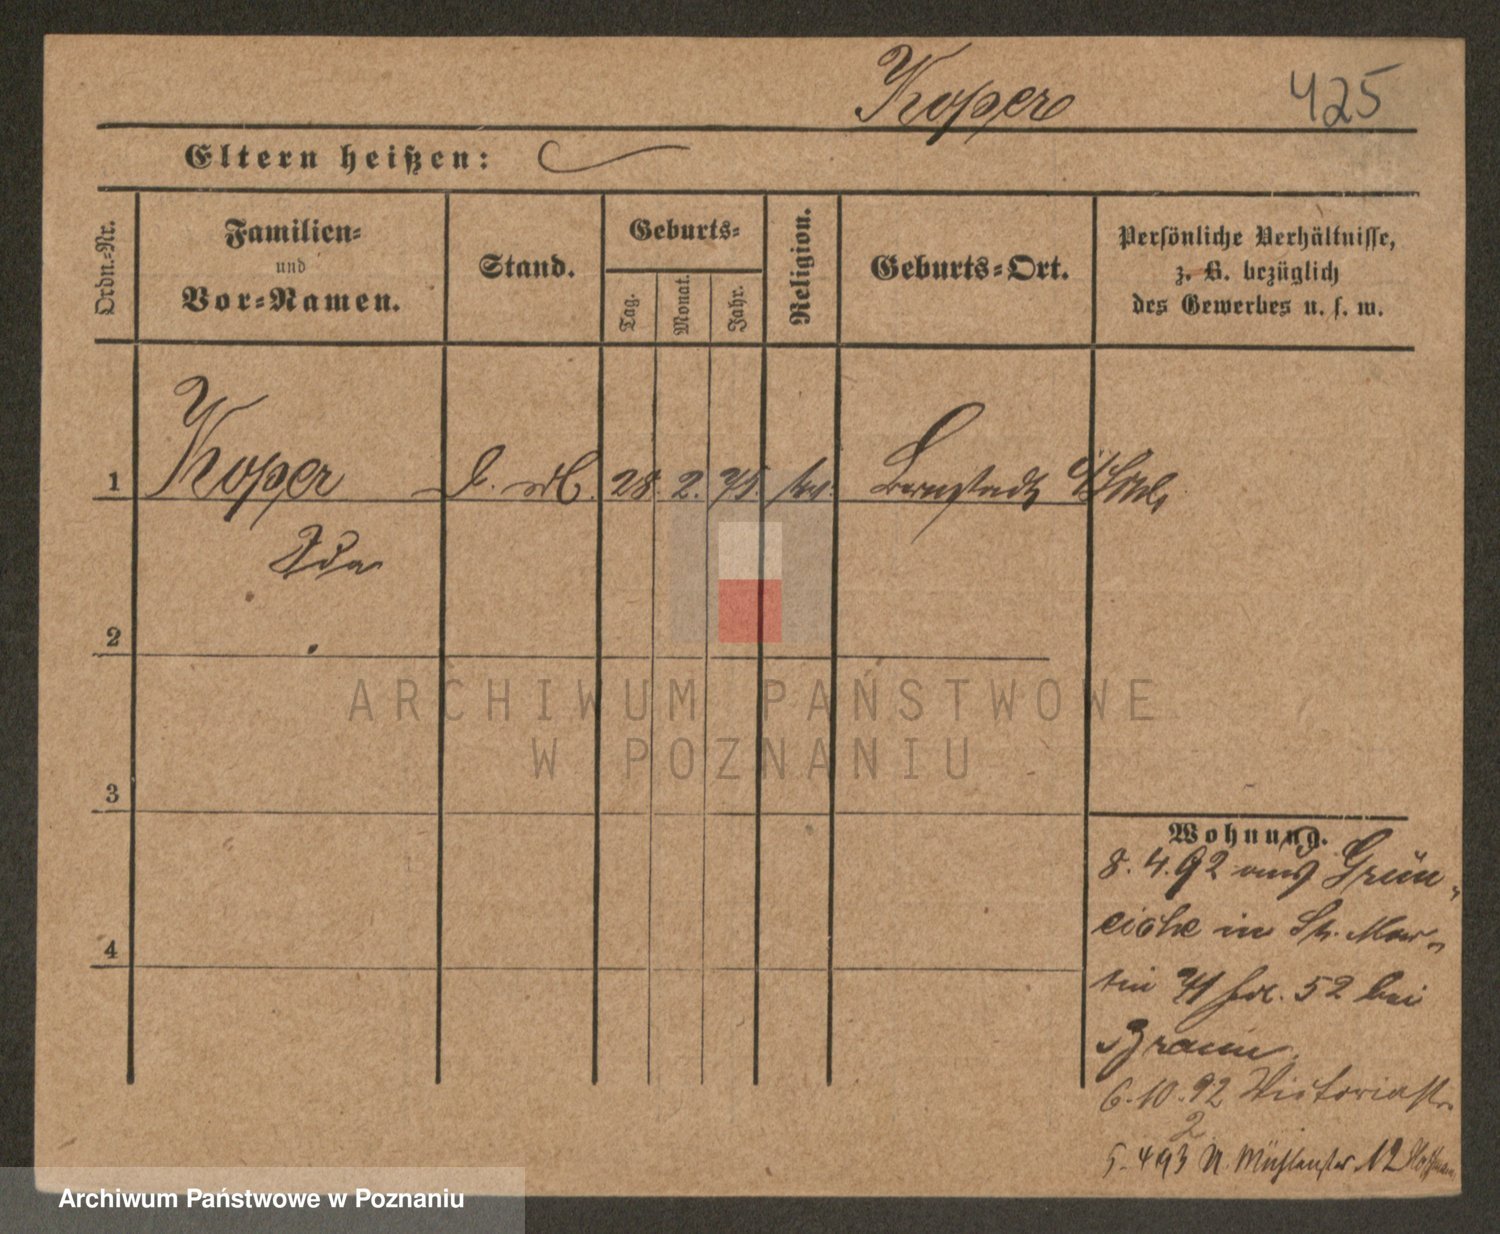 Koper 425
Eltern heißen:
Ordn.-Nr.
Familien-
und
Vor-Namen.
Stand.
Geburts-
Tag.
Monat.
Jahr.
Religion.
Geburts-Ort.
Persönliche Verhältnisse,
z. B. bezüglich
des Gewerbes u. s. w.
1 Koper 28. 2. 75. Bernstadt
Ida
2
3
4
Wohnung.
8. 4. 92 aus Grün-
eiche in St. Mar-
tin 71 bei
Braun
6. 10. 92 Victoriastr.
2
5. 4. 93 N. Mühlenstr. 12
ARCHIWUM PAŃSTWOWE
W POZNANIU
Archiwum Państwowe w Poznaniu